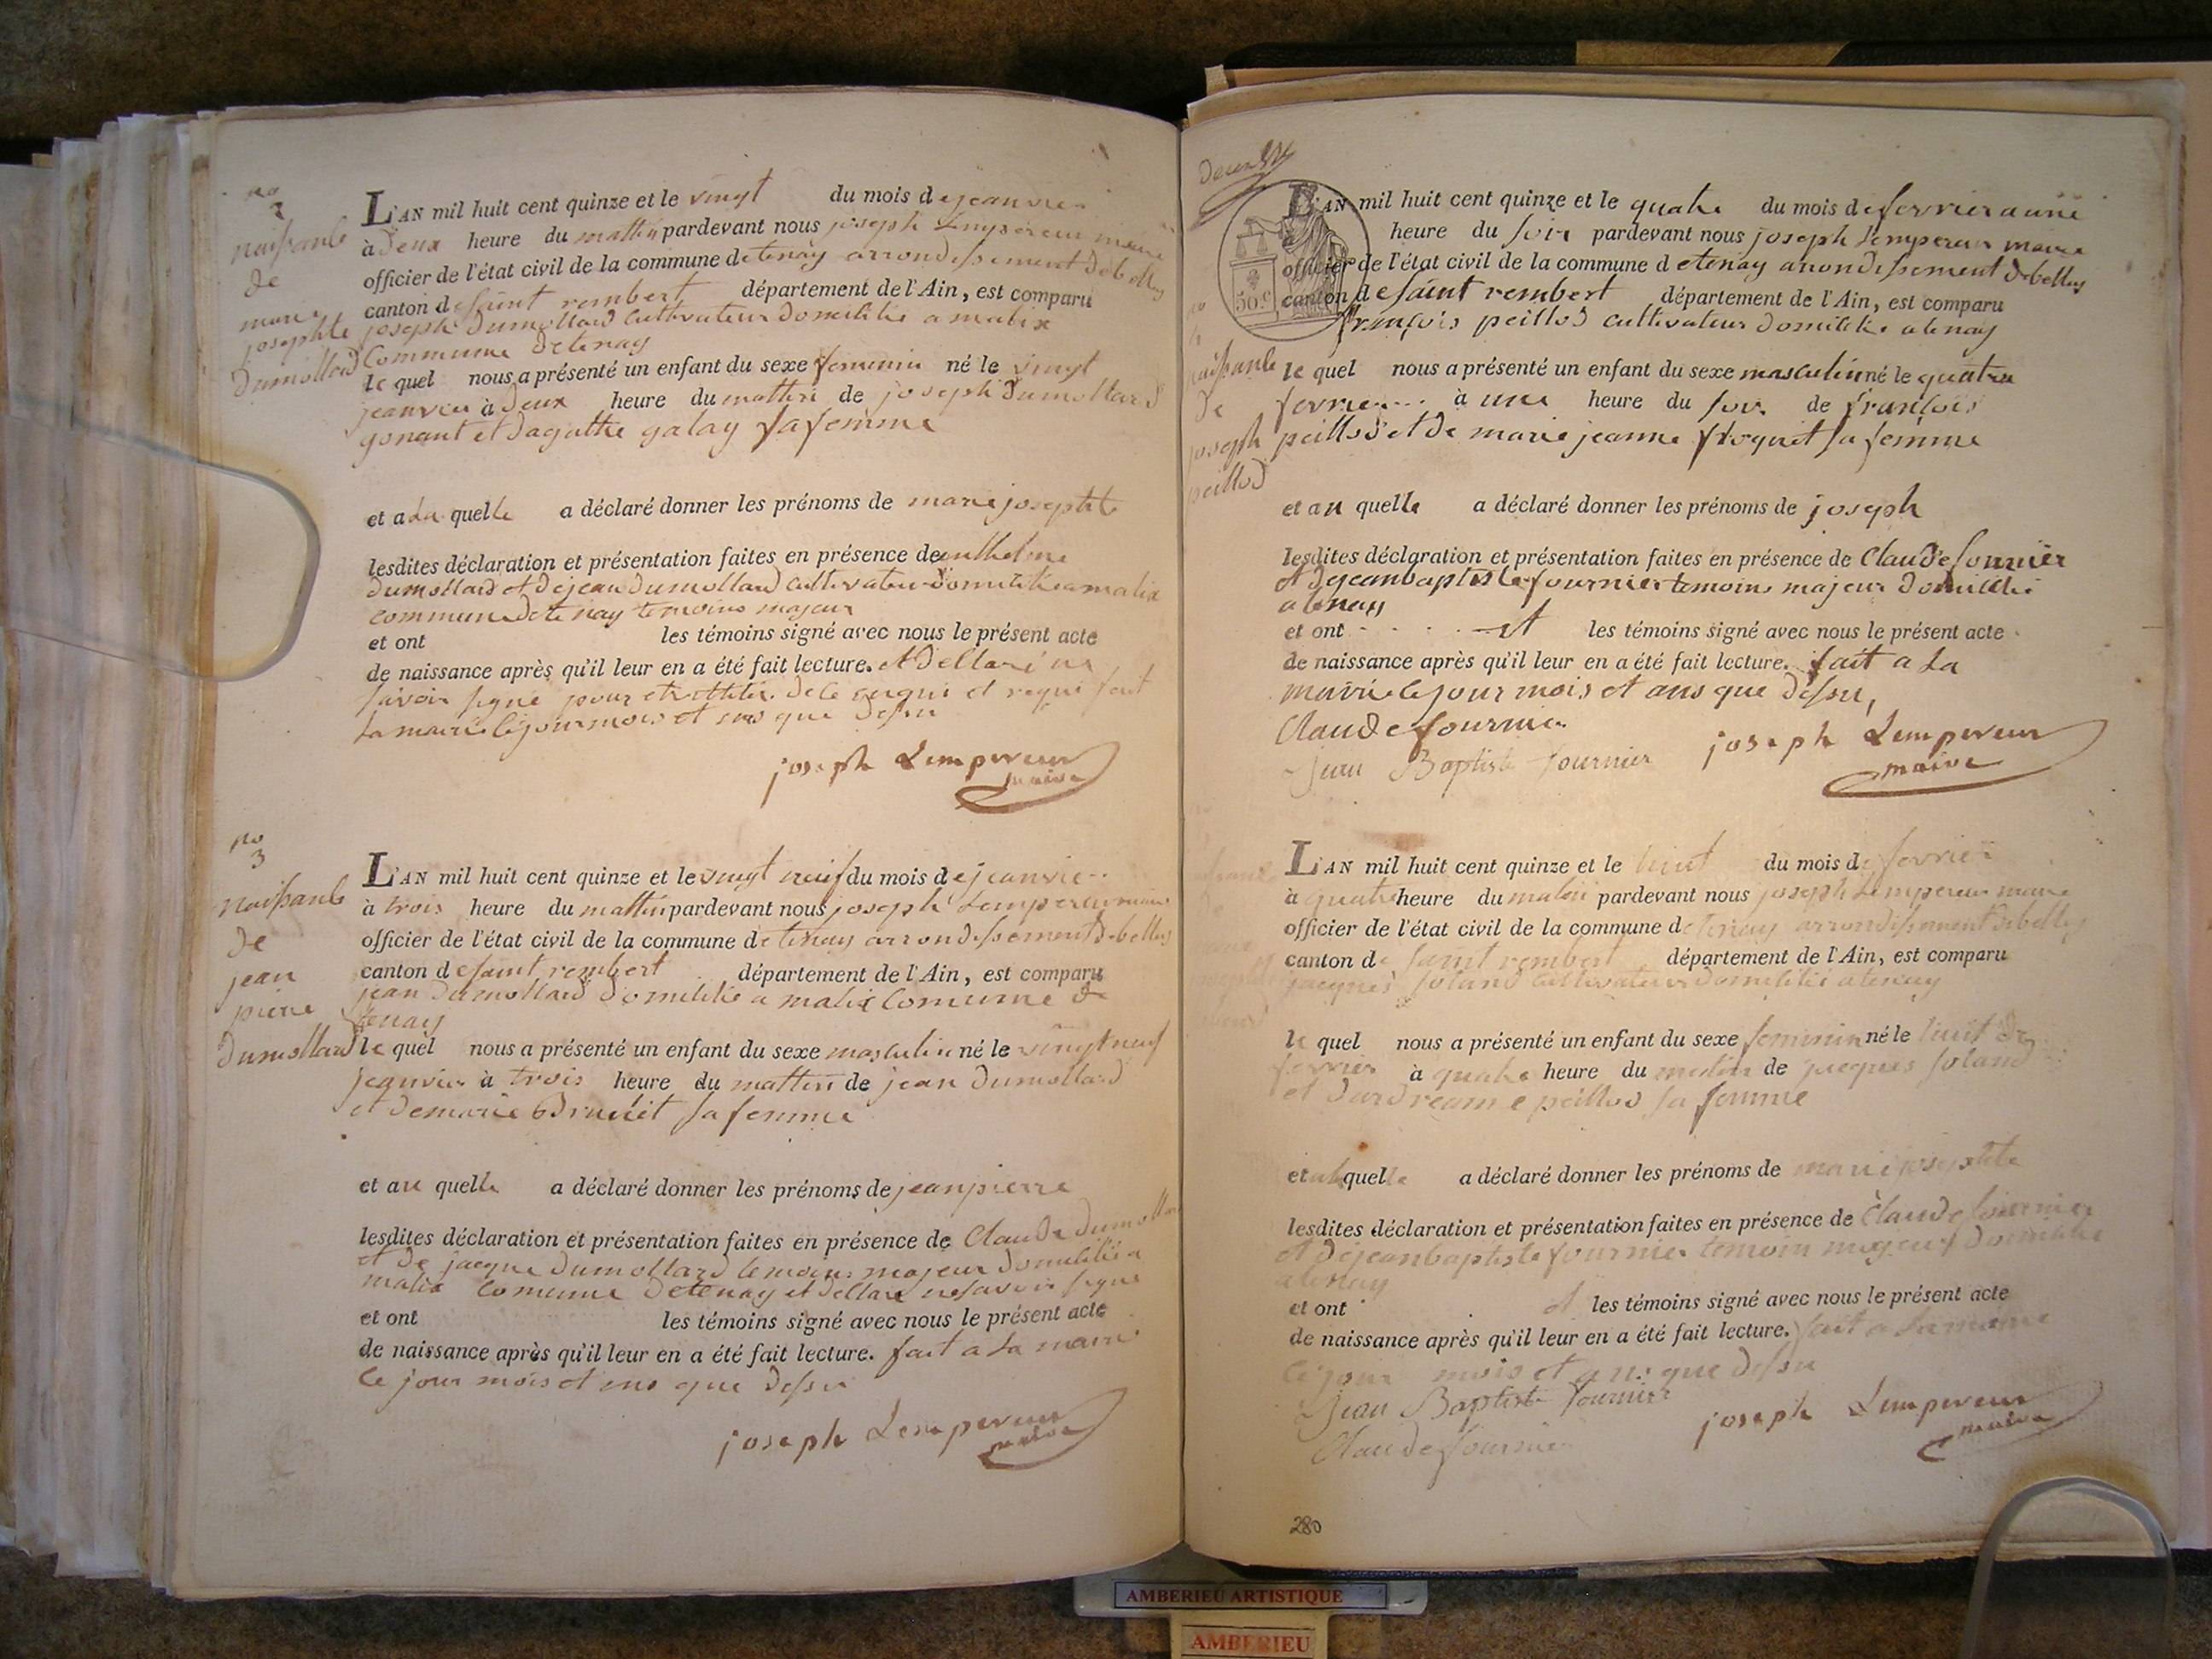 no
2
naissance
de
marie
josephte
Dumollard
L'AN mil huit cent quinze et le vingt du mois dejeanvier
à Deux heure du mattin pardevant nous joseph Lempereur maire
officier de l'état civil de la commune detenay arrondissement debelley
canton desaint rembert département de l'Ain, est comparu
joseph Dumollard Cultivateur domicilié a malix
Commune detenay
lequel nous a présenté un enfant du sexe feminin né le vingt
jeanvier à Deux heure du mattin de joseph Dumollard
gonant et Dagathe galay sa femme
et a La quelle a déclaré donner les prénoms de marie josephte
lesdites déclaration et présentation faites en présence de anthelme
Dumollard et Dejean Dumollard cultivateur domicilié a malix
commune detenay temoins majeur
et ont les témoins signé avec nous le présent acte
de naissance après qu'il leur en a été fait lecture. et Dellaré ne
savoir signé pour de ce enquis et requi fait
La mairie le jour mois et ans que Dessu
joseph Lempereur
maire
no
3
naissance
de
jean
pierre
Dumollard
L'AN mil huit cent quinze et le vingt neuf du mois dejeanvier
à trois heure du mattin pardevant nous joseph Lempereur maire
officier de l'état civil de la commune detenay arrondissement debelley
canton desaint rembert département de l'Ain, est comparu
jean Dumollard domicilié a malix Comune de
tenay
lequel nous a présenté un enfant du sexe masculin né le vingt neuf
jeanvier à trois heure du mattin de jean Dumollard
et demarie Brunet sa femme
et au quelle a déclaré donner les prénoms de jeanpierre
lesdites déclaration et présentation faites en présence de Claude Dumollard
et de jacque Dumollard temoins majeur domicilié a
malix Comune Detenay et dellaré ne savoir signé
et ont les témoins signé avec nous le présent acte
de naissance après qu'il leur en a été fait lecture. fait a La mairie
le jour mois et ans que Dessu
joseph Lempereur
maire
50.c
naissance
de
joseph
peillod
L'AN mil huit cent quinze et le quatre du mois defevrier a une
heure du soir pardevant nous joseph Lempereur maire
officier de l'état civil de la commune detenay arrondissement debelley
canton desaint rembert département de l'Ain, est comparu
françois peillod cultivateur domicilié a tenay
lequel nous a présenté un enfant du sexe masculin né le quatre
fevrier à une heure du soir de françois
peillod et de marie jeanne froquet sa femme
et au quelle a déclaré donner les prénoms de joseph
lesdites déclaration et présentation faites en présence de Claude fournier
et Dejeanbaptiste fournier temoins majeur domicilié
a tenay
et ont et les témoins signé avec nous le présent acte
de naissance après qu'il leur en a été fait lecture. fait a La
mairie le jour mois et ans que Dessu,
Claude fournier
Jean Baptiste fournier joseph Lempereur
maire
L'AN mil huit cent quinze et le huit du mois de fevrier
à quatre heure du matin pardevant nous joseph Lempereur maire
officier de l'état civil de la commune detenay arrondissement debelley
canton de saint rembert département de l'Ain, est comparu
jacques soland cultivateur domicilié a tenay
lequel nous a présenté un enfant du sexe feminin né le huit de
fevrier à quatre heure du matin de jacques soland
et dandreanne peillod sa femme
et a la quelle a déclaré donner les prénoms de marie josephte
lesdites déclaration et présentation faites en présence de Claude fournier
et Dejeanbaptiste fournier temoin majeur domicilié
a tenay
et ont et les témoins signé avec nous le présent acte
de naissance après qu'il leur en a été fait lecture. fait a La mairie
le jour mois et ans que dessu
Jean Baptiste fournier joseph Lempereur
Claude fournier maire
280
AMBERIEU ARTISTIQUE
AMBERIEU